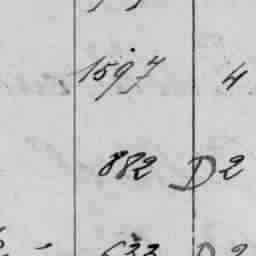 1597 4
882 D2